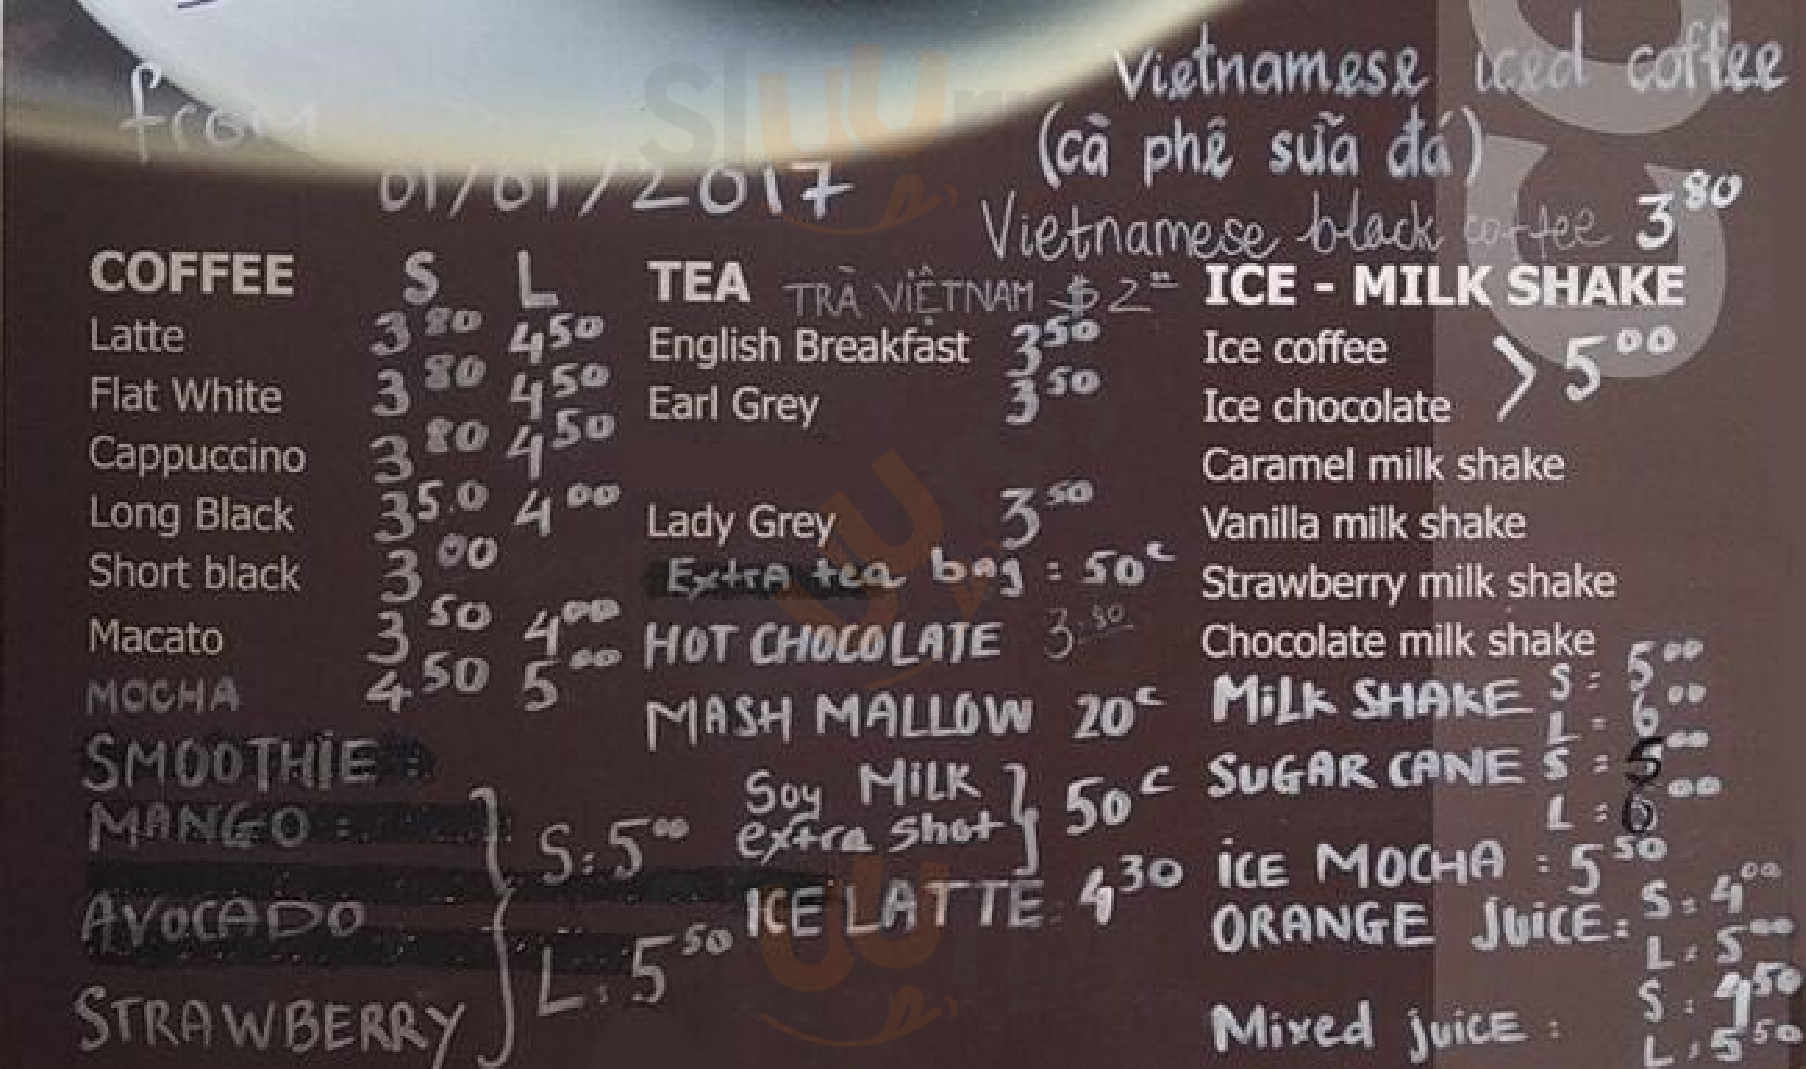 from
01/01/2017
Vietnamese iced coffee
(cà phê sữa đá)
Vietnamese black coffee 3 80
COFFEE S L
Latte 3 80 4 50
Flat White 3 80 4 50
Cappuccino 3 80 4 50
Long Black 3 5.0 4 00
Short black 3 00
Macato 3 50 4 00
MOCHA 4 50 5 00
SMOOTHIE :
MANGO :
AVOCADO
STRAWBERRY
S: 5 00
L: 5 50
TEA TRÀ VIỆTNAM $2
English Breakfast 3 50
Earl Grey 3 50
Lady Grey 3 50
Extra tea bag : 50c
HOT CHOCOLATE 3.80
MASH MALLOW 20c
Soy MILK
extra shot } 50c
ICE LATTE: 4 30
ICE - MILK SHAKE
Ice coffee
Ice chocolate > 5 00
Caramel milk shake
Vanilla milk shake
Strawberry milk shake
Chocolate milk shake
MILK SHAKE S: 5 00
L: 6 00
SUGAR CANE S: 5 00
L: 6 00
ICE MOCHA : 5 50
ORANGE JUICE: S: 4 00
L: 5 00
Mixed juice : S: 4 50
L: 5 50
Sluurpy